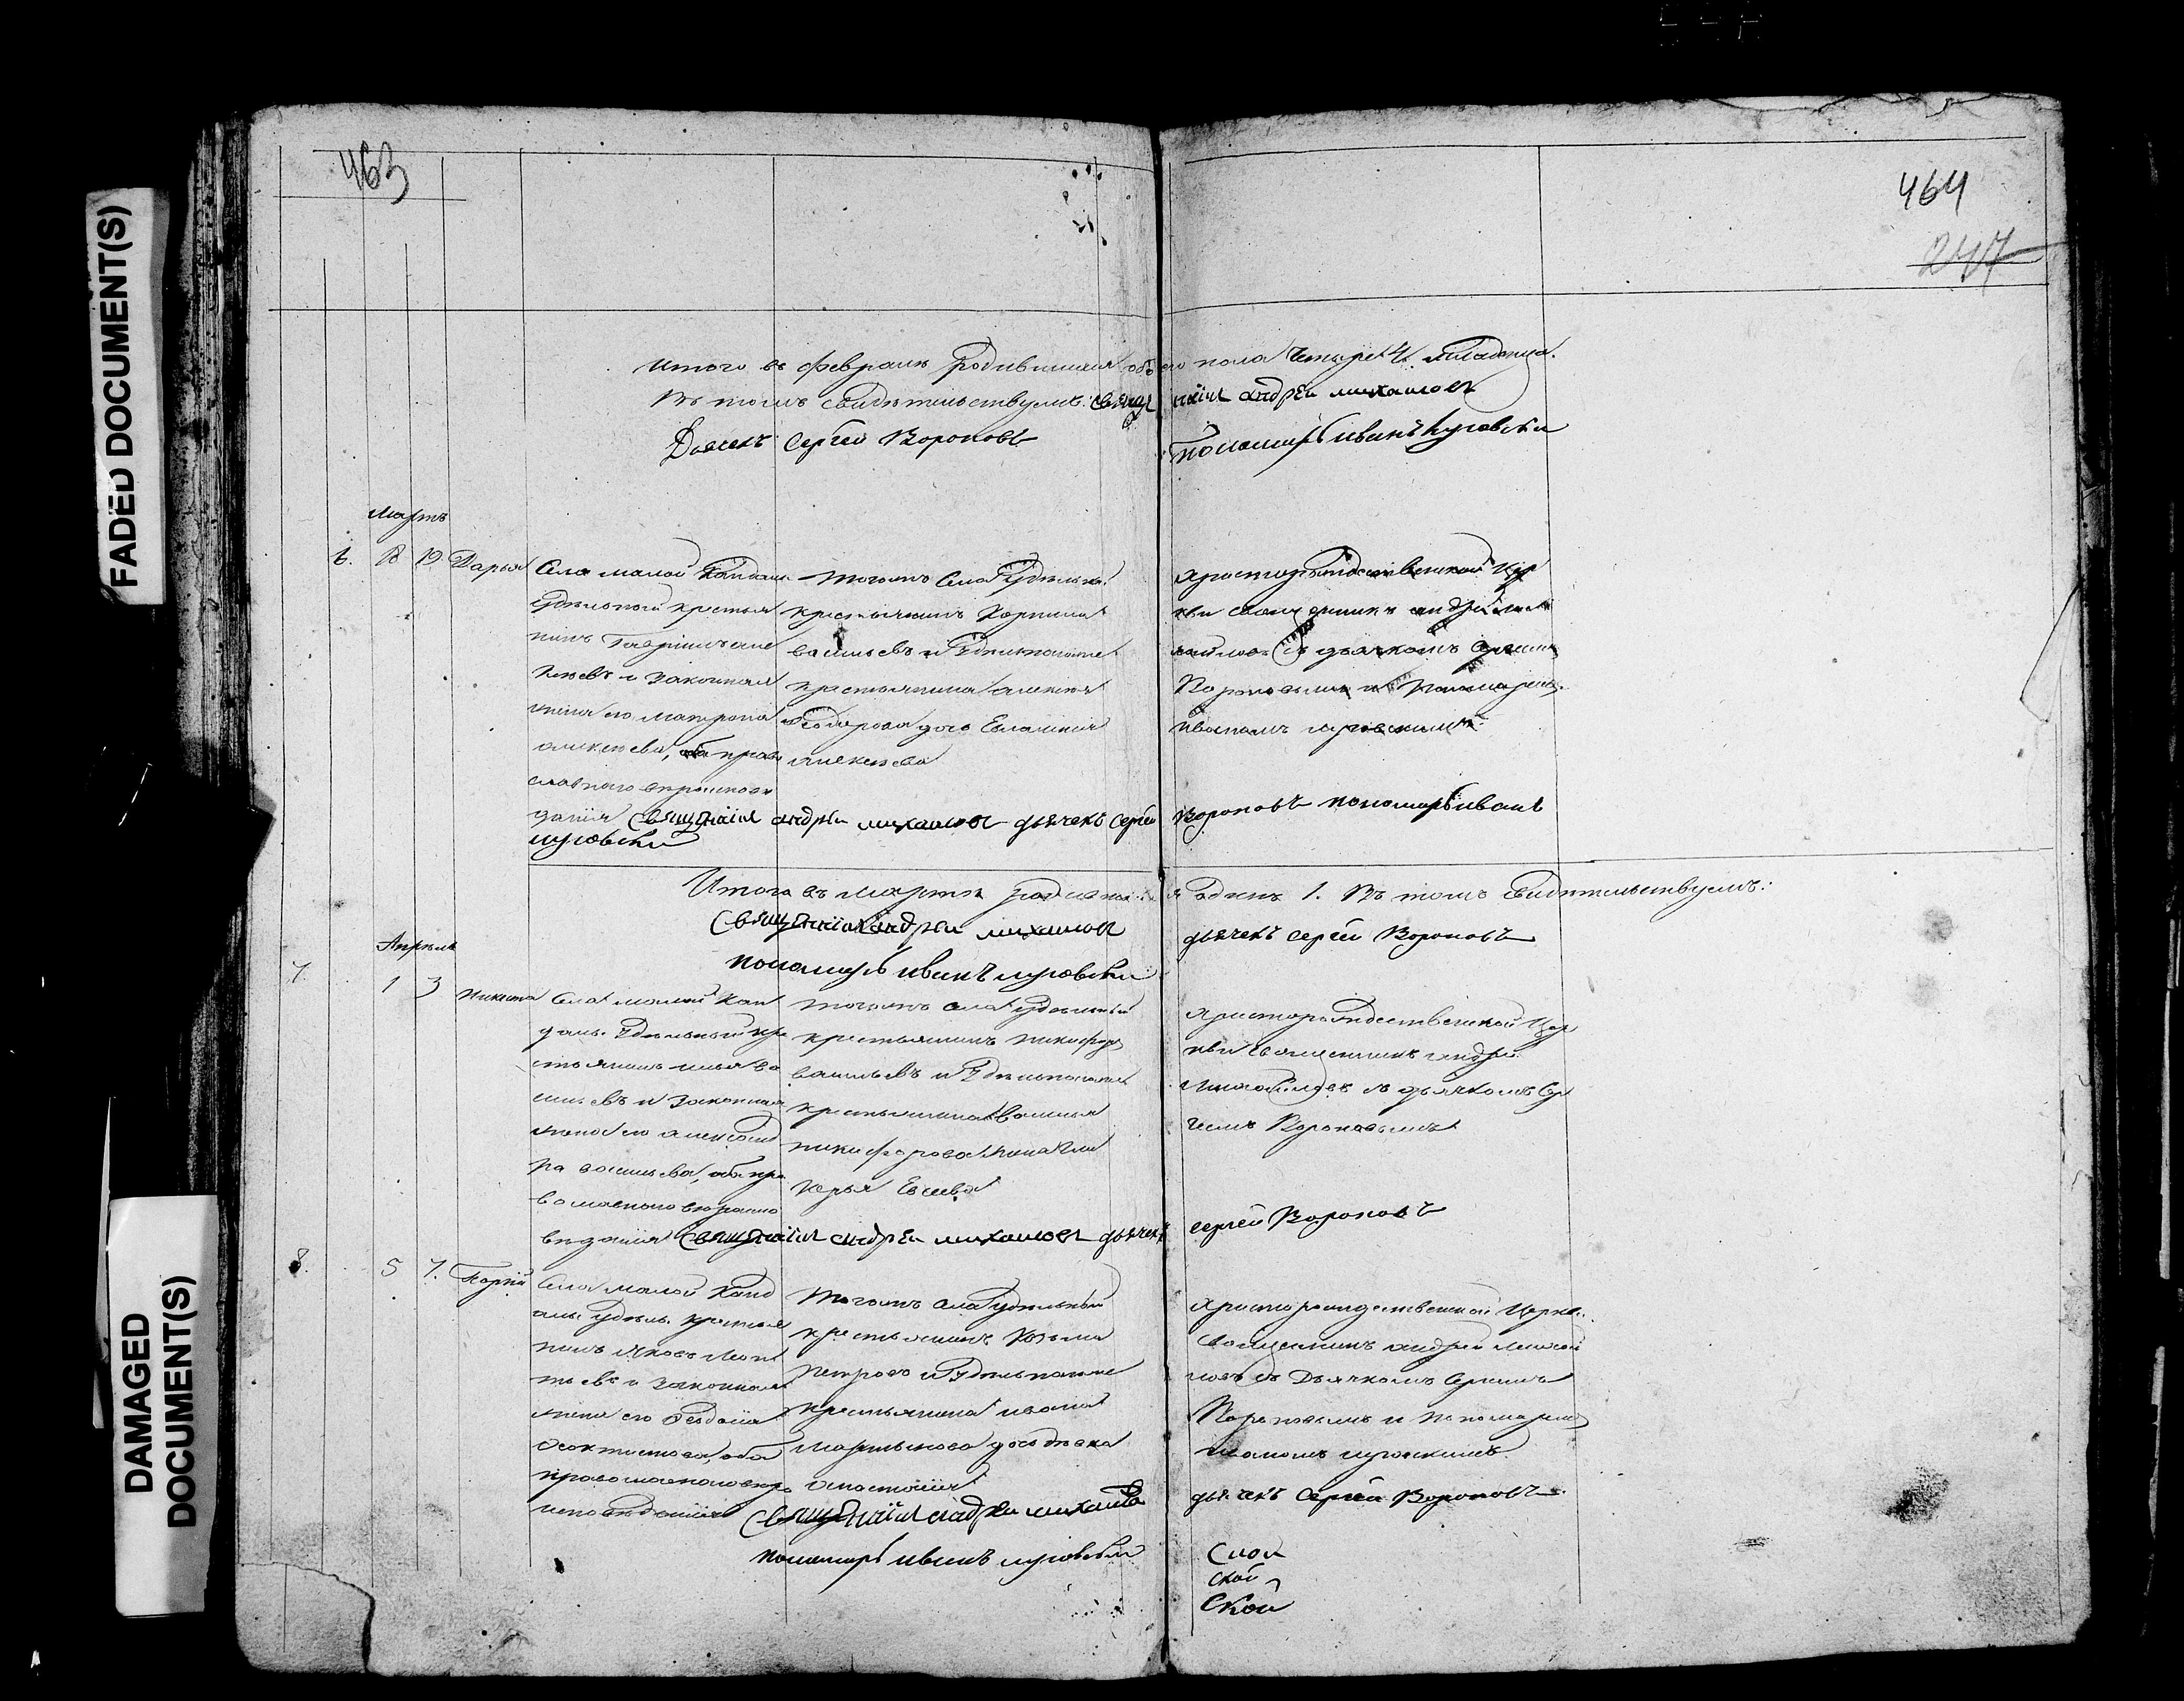 FADED DOCUMENT(S)
DAMAGED
DOCUMENT(S)
463
464
247
Итого въ февралѣ родившихся обоего пола четыре 4. младенца.
Въ томъ свидѣтельствуемъ: Священникъ андрей михаиловъ
Дьячекъ Сергей Вороновъ
пономарь иванъ луговски
Мартъ
6. 18 19 Дарья
Села малой Кандалы
удѣльной крестья
нинъ Гавріилъ але
ксѣевъ и законная
жена его матрона
алексѣева, оба право
славнаго вѣроисповѣ
данія
Тогожъ Села Удѣльной
крестьянинъ
васильевъ и Удѣльнагоже
крестьянина алексея
Ѳедорова дочь Евлампия
алексѣева
христорождественской Цер
кви священникъ андрей ми
хайловъ съ дьячкомъ Сергеем
Вороновымъ и Пономаремъ
иваномъ луговскимъ.
Священникъ андрей михаиловъ дьячекъ Сергей Вороновъ пономарь иванъ
луговски
Итого въ мартѣ родивши я Одинъ 1. Въ томъ свидѣтельствуемъ:
Священникъ андрей михаиловъ
дьячекъ Сергей Вороновъ
пономарь иванъ луговски
Апрель
7. 1 3 Никита
Села малой Кан
далы Удѣльный кре
стьянинъ илья ва
сильевъ и законная
жена его александ
ра васильева, оба пра
вославнаго вѣроиспо
вѣданія
Тогожъ села удѣльный
крестьянинъ никифоръ
васильевъ и Удѣльнагоже
крестьянина василья
никифорова жена Гли
керья Евсеева
христорождественской Цер
кви священникъ андрей
михайловъ съ дьячкомъ Сер
геемъ Вороновымъ
Священникъ андрей михаиловъ дьячекъ Сергей Вороновъ
8. 5 7.
Села малой Канд
алы удѣль. крестья
нинъ Яковъ Леон
тьевъ и законная
жена его Ѳедосія
оба
православнаго вѣро
исповѣданія
Тогожъ села Удѣльный
крестьянинъ Козьма
петровъ и Удѣльнагоже
крестьянина ивана
мартынова дочь дѣвка
анастасія
христорождественской Церкви
Священникъ андрей михай
ловъ съ Дьячкомъ Сергеемъ
Вороновымъ и пономаремъ
иваномъ луговскимъ.
Священникъ андрей михаиловъ
дьячекъ Сергей Вороновъ
пономарь иванъ луговски
ской
Ской